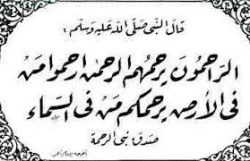 قال النبي صلى الله عليه وسلم :
الرَّاحِمُونَ يَرْحَمُهُمُ الرَّحْمٰنُ اِرْحَمُوا مَنْ
فِي الْأَرْضِ يَرْحَمْكُمْ مَنْ فِي السَّمَاءِ
صدق نبي الرحمة